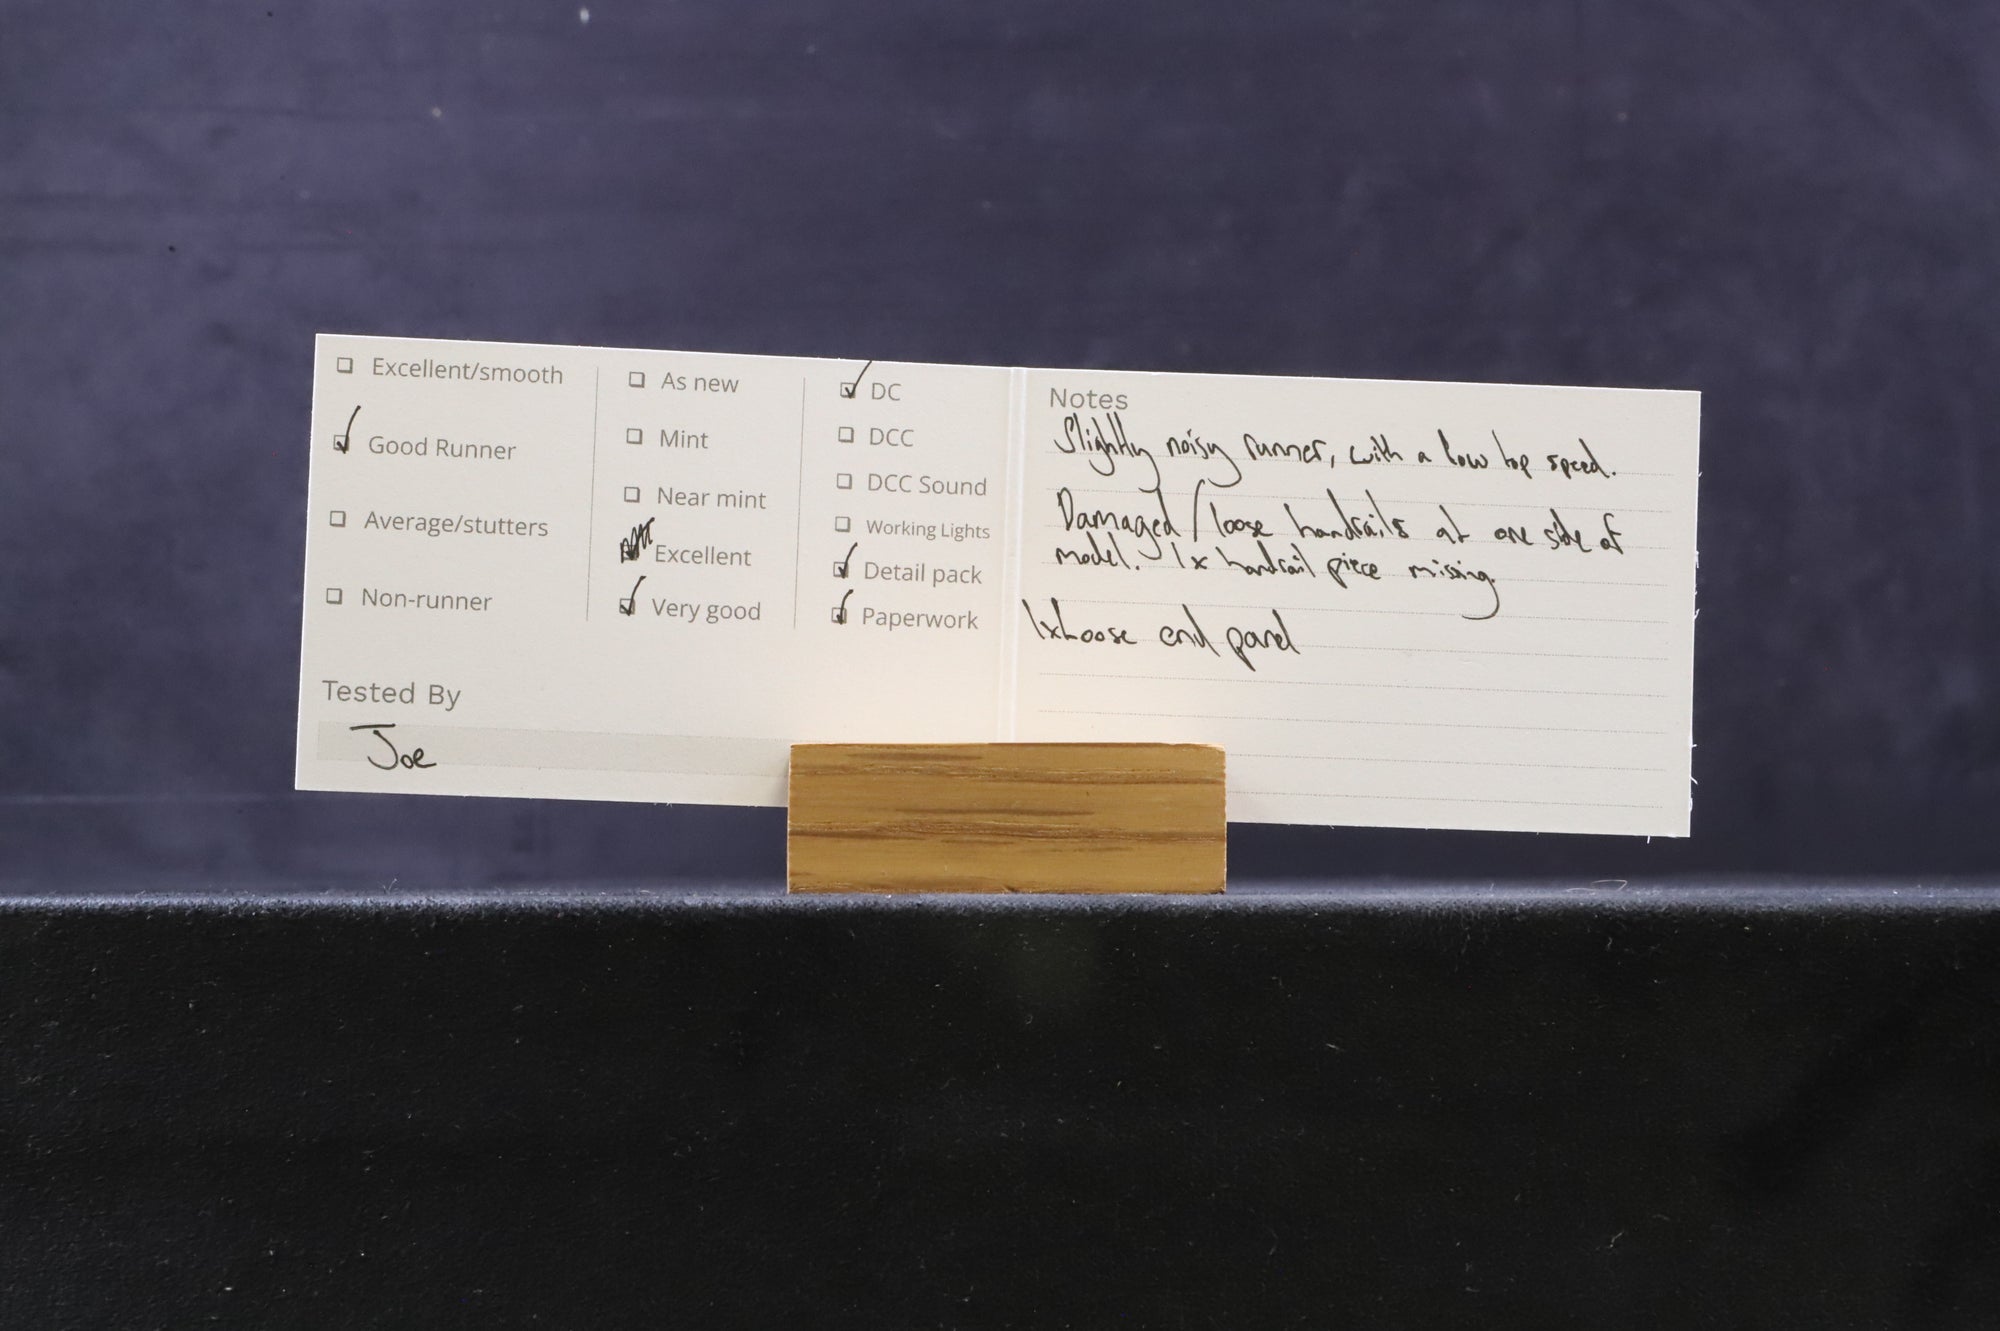 Excellent/smooth
Good Runner
Average/stutters
Non-runner
As new
Mint
Near mint
Excellent
Very good
DC
DCC
DCC Sound
Working Lights
Detail pack
Paperwork
Tested By
Joe
Notes
Slightly noisy runner, with a low top speed.
Damaged/loose handrails at one side of
model. 1x handrail piece missing.
1xLoose end panel